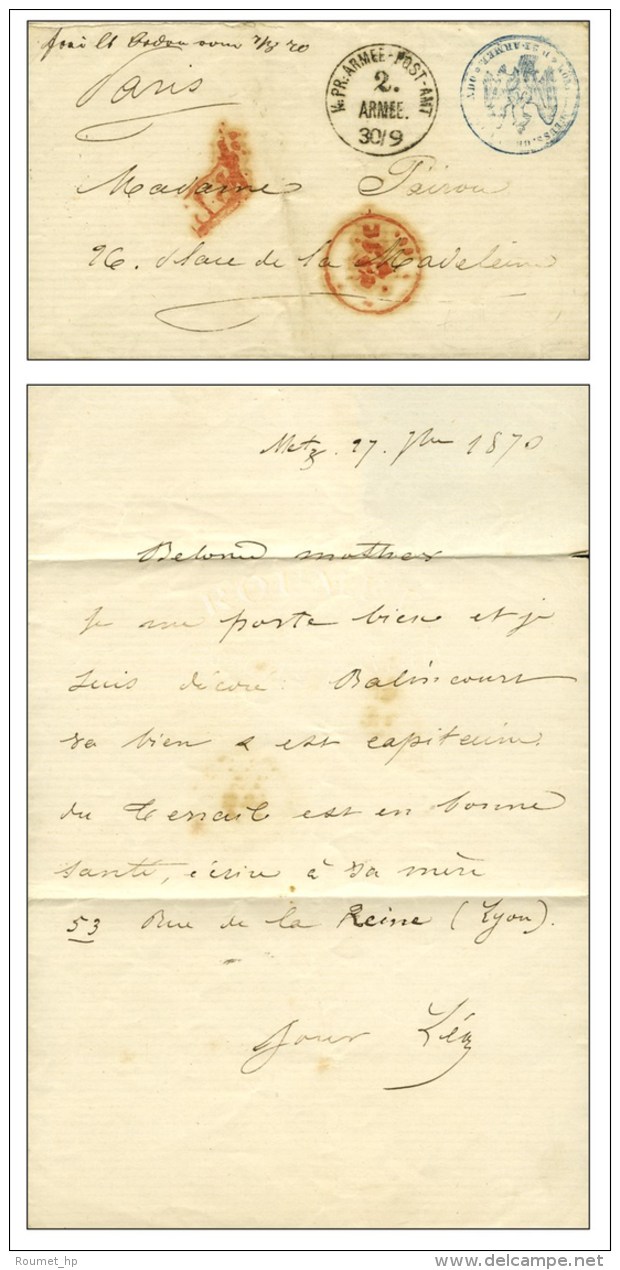 Paris
K. PR. ARMEE-POST-AMT
2.
ARMEE.
30/9
Madame Pairou
26. Place de la Madeleine
Metz. 27. 7bre 1870
Beloved mother
Je me porte bien et je
suis décoré. Balincourt
va bien & est capitaine.
du Terrail est en bonne
santé, écrire à sa mère
53 Rue de la Reine (Lyon).
your Léon
Roumet_hp
delcampe.net